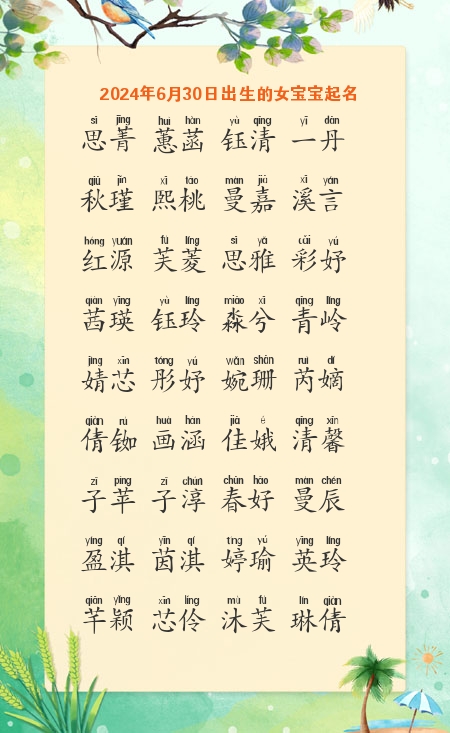 2024年6月30日出生的女宝宝起名
sī jīng huì hàn yù qīng yī dān
思菁 蕙菡 钰清 一丹
qiū jǐn xī táo màn jiā xī yán
秋瑾 熙桃 曼嘉 溪言
hóng yuán fú líng sī yǎ cǎi yú
红源 芙菱 思雅 彩妤
qiàn yīng yù líng miǎo xī qīng lǐng
茜瑛 钰玲 淼兮 青岭
jìng xīn tóng yú wǎn shān ruì dí
婧芯 彤妤 婉珊 芮嫡
qiàn rú huà hán jiā é qīng xīn
倩铷 画涵 佳娥 清馨
zǐ píng zǐ chún chūn hǎo màn chén
子苹 子淳 春好 曼辰
yíng qí yīn qí tíng yú yīng líng
盈淇 茵淇 婷瑜 英玲
qiān yǐng xīn líng mù fú lín qiàn
芊颖 芯伶 沐芙 琳倩